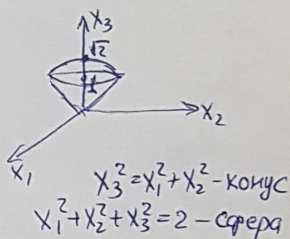 X₃
√2
1
X₂
X₁
X₃² = X₁² + X₂² – конус
X₁² + X₂² + X₃² = 2 – сфера